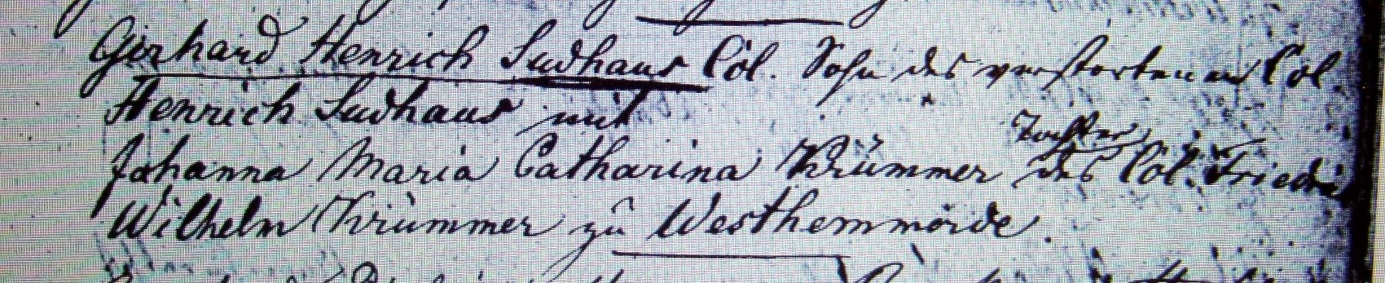 Gerhard Henrich Sudhaus Col. Sohn des verstorbenen Col.
Henrich Sudhaus mit
Tochter
Johanna Maria Catharina Krümmer des Col. Friedri
Wilhelm Krümmer zu Westhemmerde.